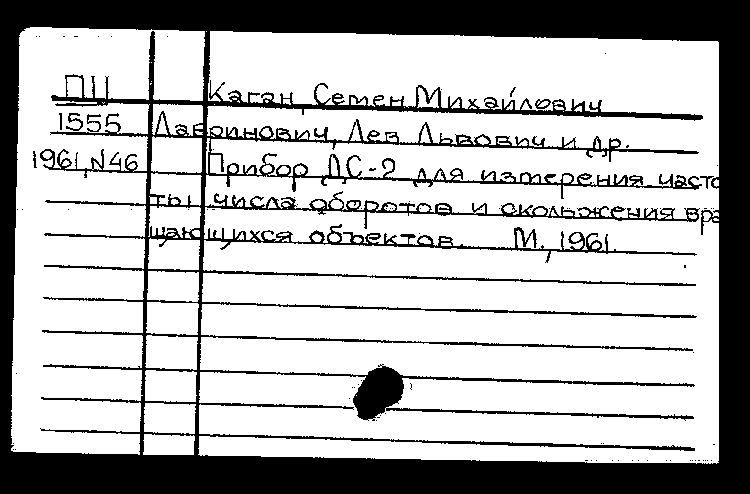 ПЦ Каган, Семен Михайлович
1555 Лавринович, Лев Львович и др.
1961, N46 Прибор ДС-2 для измерения часто
ты числа оборотов и скольжения вра
щающихся объектов. М., 1961.